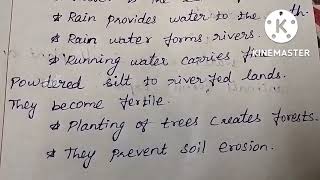 * Rain provides water to the th.
* Rain water forms rivers.
* Running water carries
Powdered silt to river fed lands.
They become fertile.
* Planting of trees creates forests.
* They prevent soil erosion.
KINEMASTER